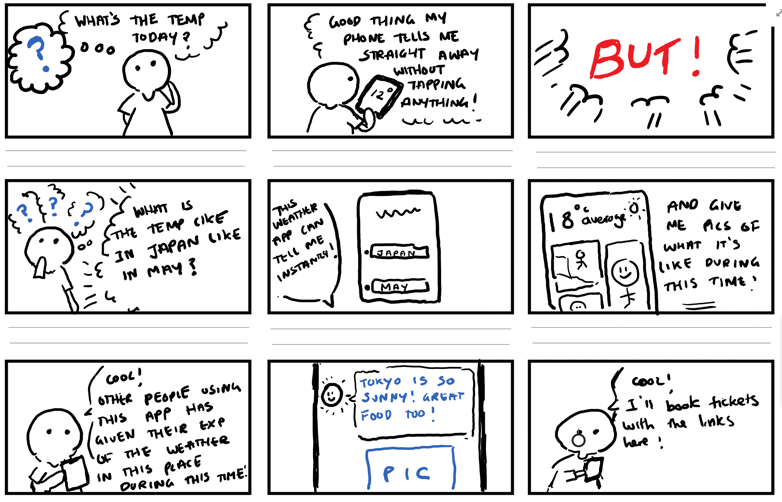 ?
WHAT'S THE TEMP
TODAY?
GOOD THING MY
PHONE TELLS ME
STRAIGHT AWAY
WITHOUT
TAPPING
ANYTHING!
12°
BUT!
? ? ?
WHAT IS
THE TEMP LIKE
IN JAPAN LIKE
IN MAY?
THIS
WEATHER
APP CAN
TELL ME
INSTANTLY!
JAPAN
MAY
18°C
average
AND GIVE
ME PICS OF
WHAT IT'S
LIKE DURING
THIS TIME!
COOL!
OTHER PEOPLE USING
THIS APP HAS
GIVEN THEIR EXP
OF THE WEATHER
IN THIS PLACE
DURING THIS TIME!
TOKYO IS SO
SUNNY! GREAT
FOOD TOO!
PIC
COOL!
I'll book tickets
with the links
here!